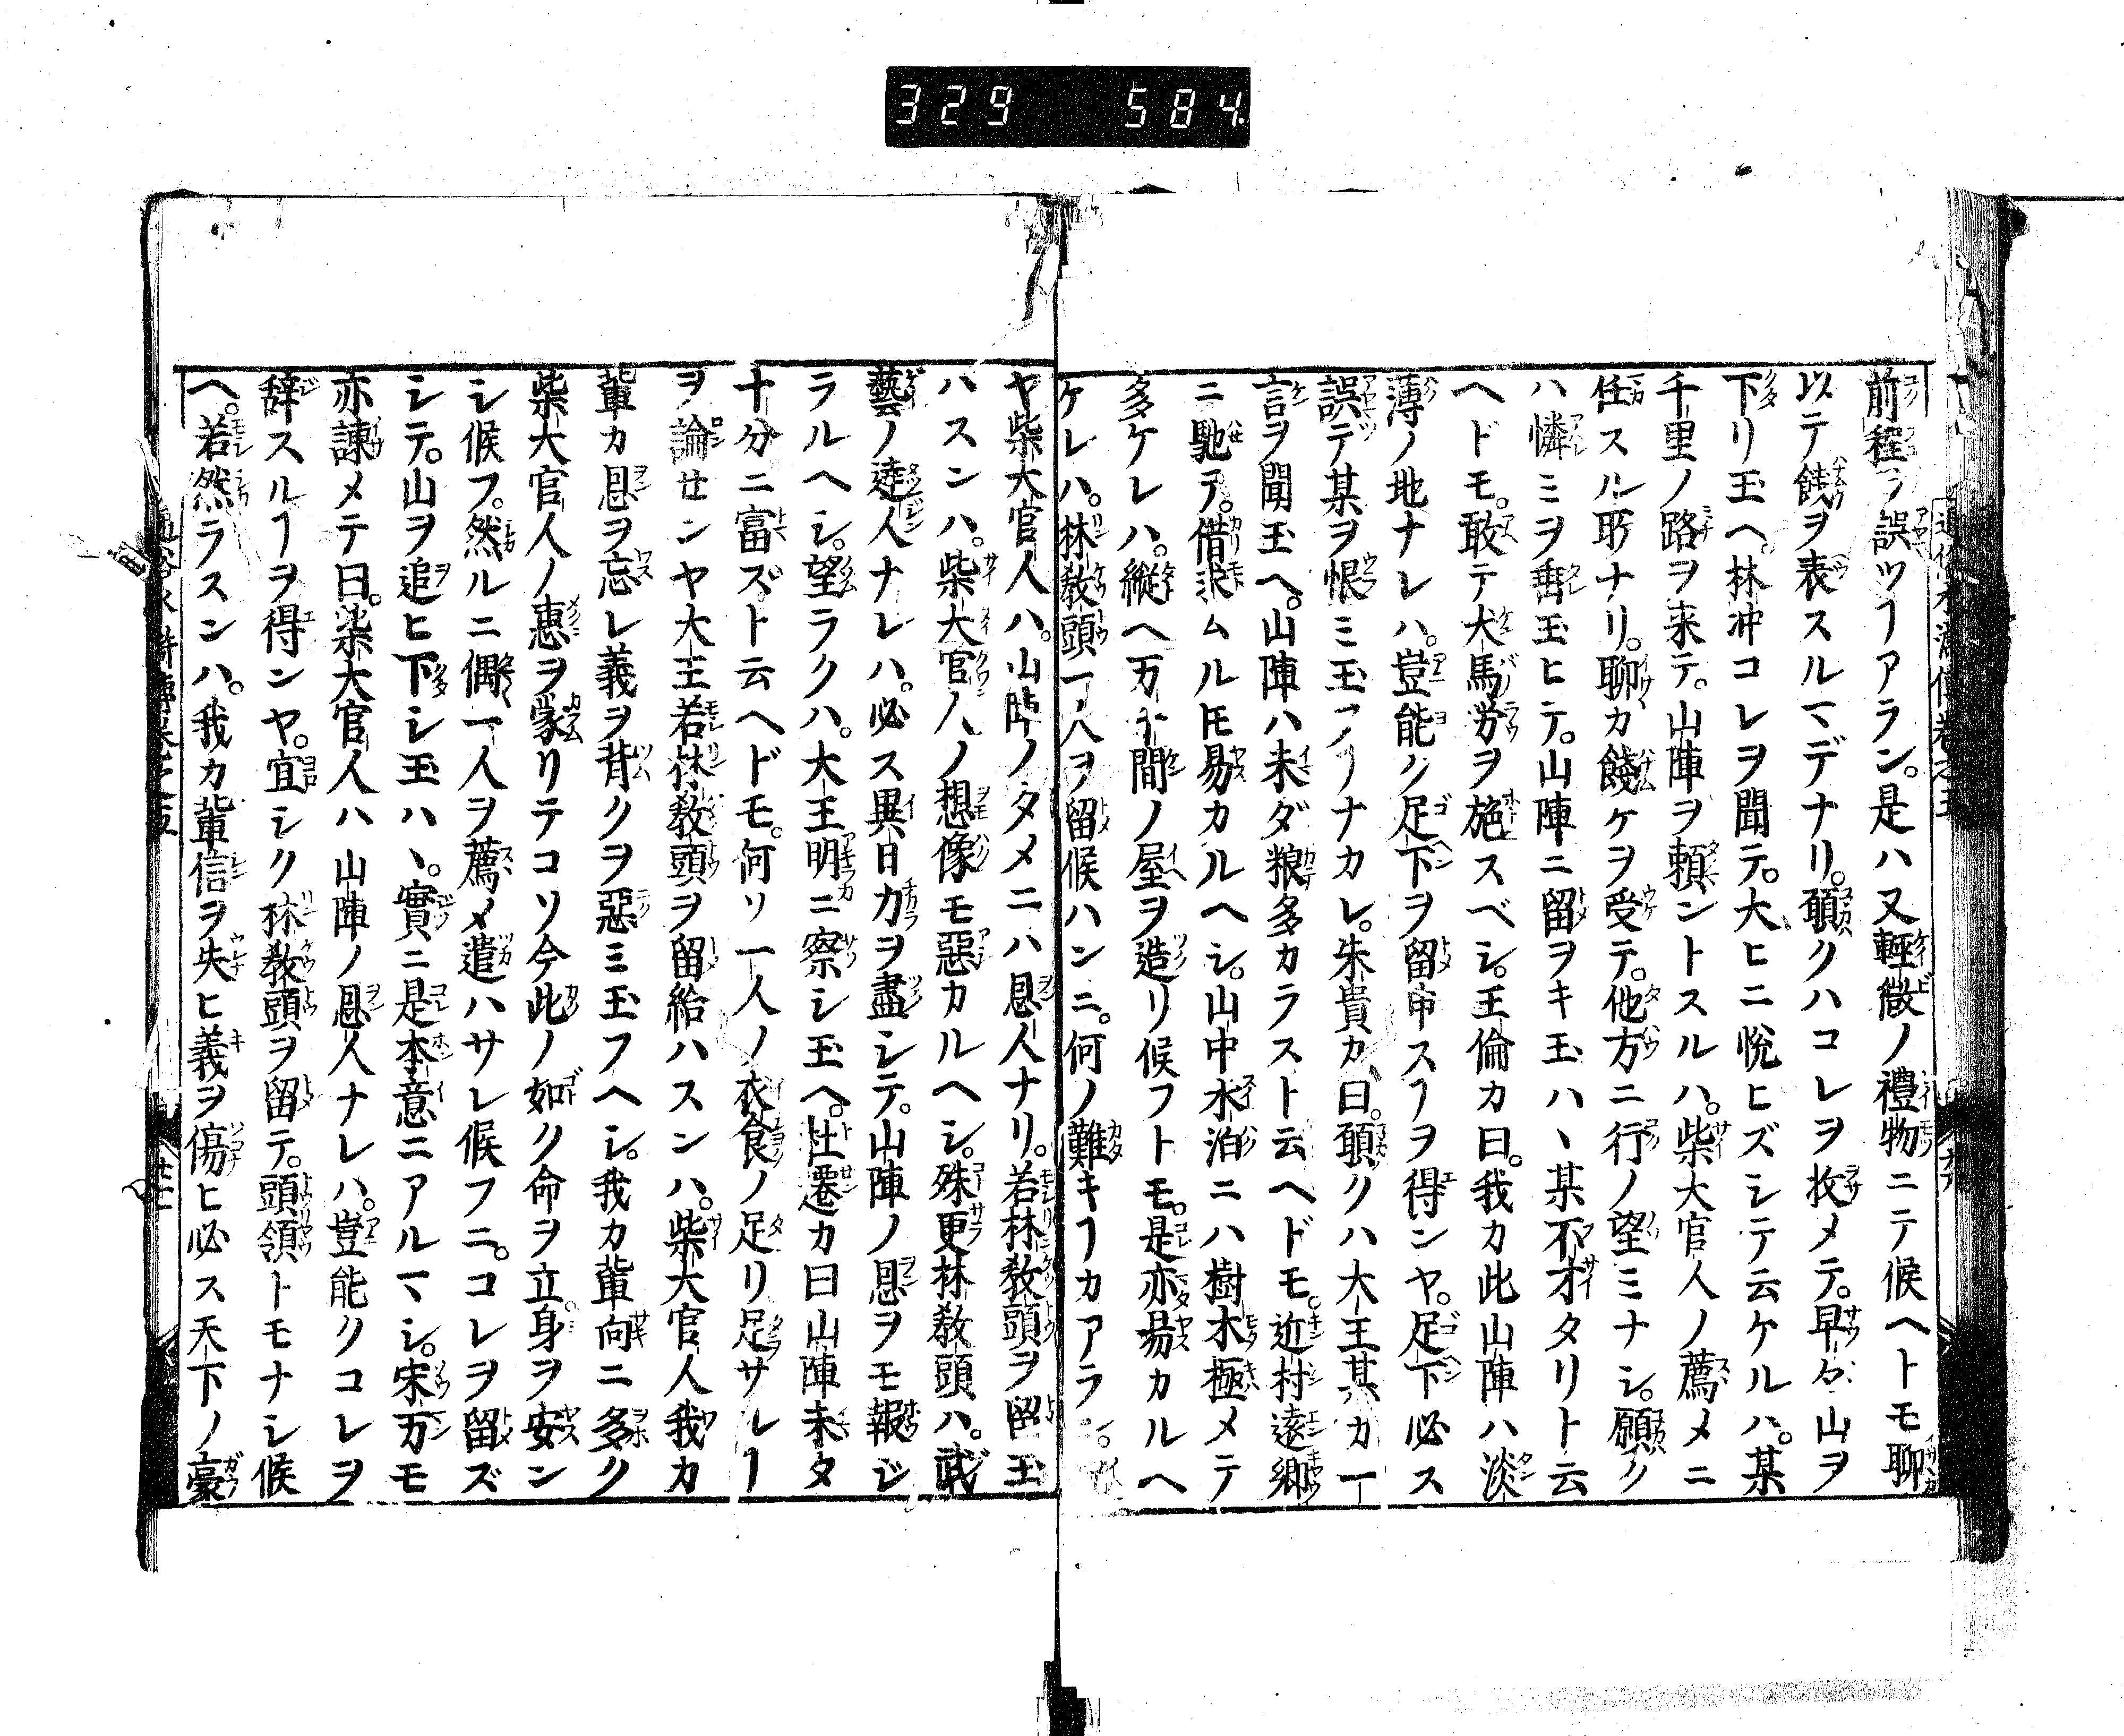 329 584
前程ヲ誤ツヿアラン。是ハ又輕微ノ禮物ニテ候ヘトモ聊
以テ餞ヲ表スルマデナリ。願クハコレヲ收メテ。早々山ヲ
下リ玉ヘ。林冲コレヲ聞テ。大ヒニ悅ヒズシテ云ケルハ。某
千里ノ路ヲ来テ。山陣ヲ頼ントスルハ。柴大官人ノ薦メニ
任スル所ナリ。聊カ餞ケヲ受テ。他方ニ行ノ望ミナシ。願ク
ハ憐ミヲ垂玉ヒテ。山陣ニ留ヲキ玉ハヽ某不才タリト云
ヘドモ。敢テ犬馬労ヲ施スベシ。王倫カ曰。我カ此山陣ハ淡
薄ノ地ナレハ。豈能ク足下ヲ留申スヿヲ得ンヤ。足下必ス
誤テ某ヲ恨ミ玉フヿナカレ。朱貴カ曰。願クハ大王某カ一
言ヲ聞玉ヘ。山陣ハ未ダ粮多カラスト云ヘドモ。近村遠郷
ニ馳テ。借求ムルモ易カルヘシ。山中水泊ニハ樹木極メテ
多ケレハ。縦ヘ万千間ノ屋ヲ造リ候フトモ。是亦易カルヘ
ケレハ。林教頭一人ヲ留候ハンニ。何ノ難キヿカアラン。
ヤ柴大官人ハ。山陣ノタメニハ恩人ナリ。若林教頭ヲ留玉
ハスンハ。柴大官人ノ想像モ惡カルヘシ。殊更林教頭ハ。武
藝ノ達人ナレハ。必ス異日力ヲ盡シテ。山陣ノ恩ヲモ報ジ
ラルヘシ。望ラクハ。大王明ニ察シ玉ヘ。杜遷カ曰山陣未タ
十分ニ富ズト云ヘドモ。何ソ一人ノ衣食ノ足リ足サレヿ
ヲ論せンヤ大王若林教頭ヲ留給ハスンハ。柴大官人我カ
輩カ恩ヲ忘レ義ヲ背クヲ惡ミ玉フヘシ。我カ輩向ニ多ク
柴大官人ノ惠ヲ蒙リテコソ今此ノ如ク命ヲ立身ヲ安ン
シ候フ。然ルニ偶一人ヲ薦メ遣ハサレ候フニ。コレヲ留ズ
シテ。山ヲ追ヒ下シ玉ハヽ。實ニ是本意ニアルマシ。宋万モ
亦諌メテ曰。柴大官人ハ山陣ノ恩人ナレハ。豈能クコレヲ
辞スルヿヲ得ンヤ。宜シク林教頭ヲ留テ。頭領トモナシ候
ヘ。若然ラスンハ。我カ輩信ヲ失ヒ義ヲ傷ヒ必ス天下ノ豪